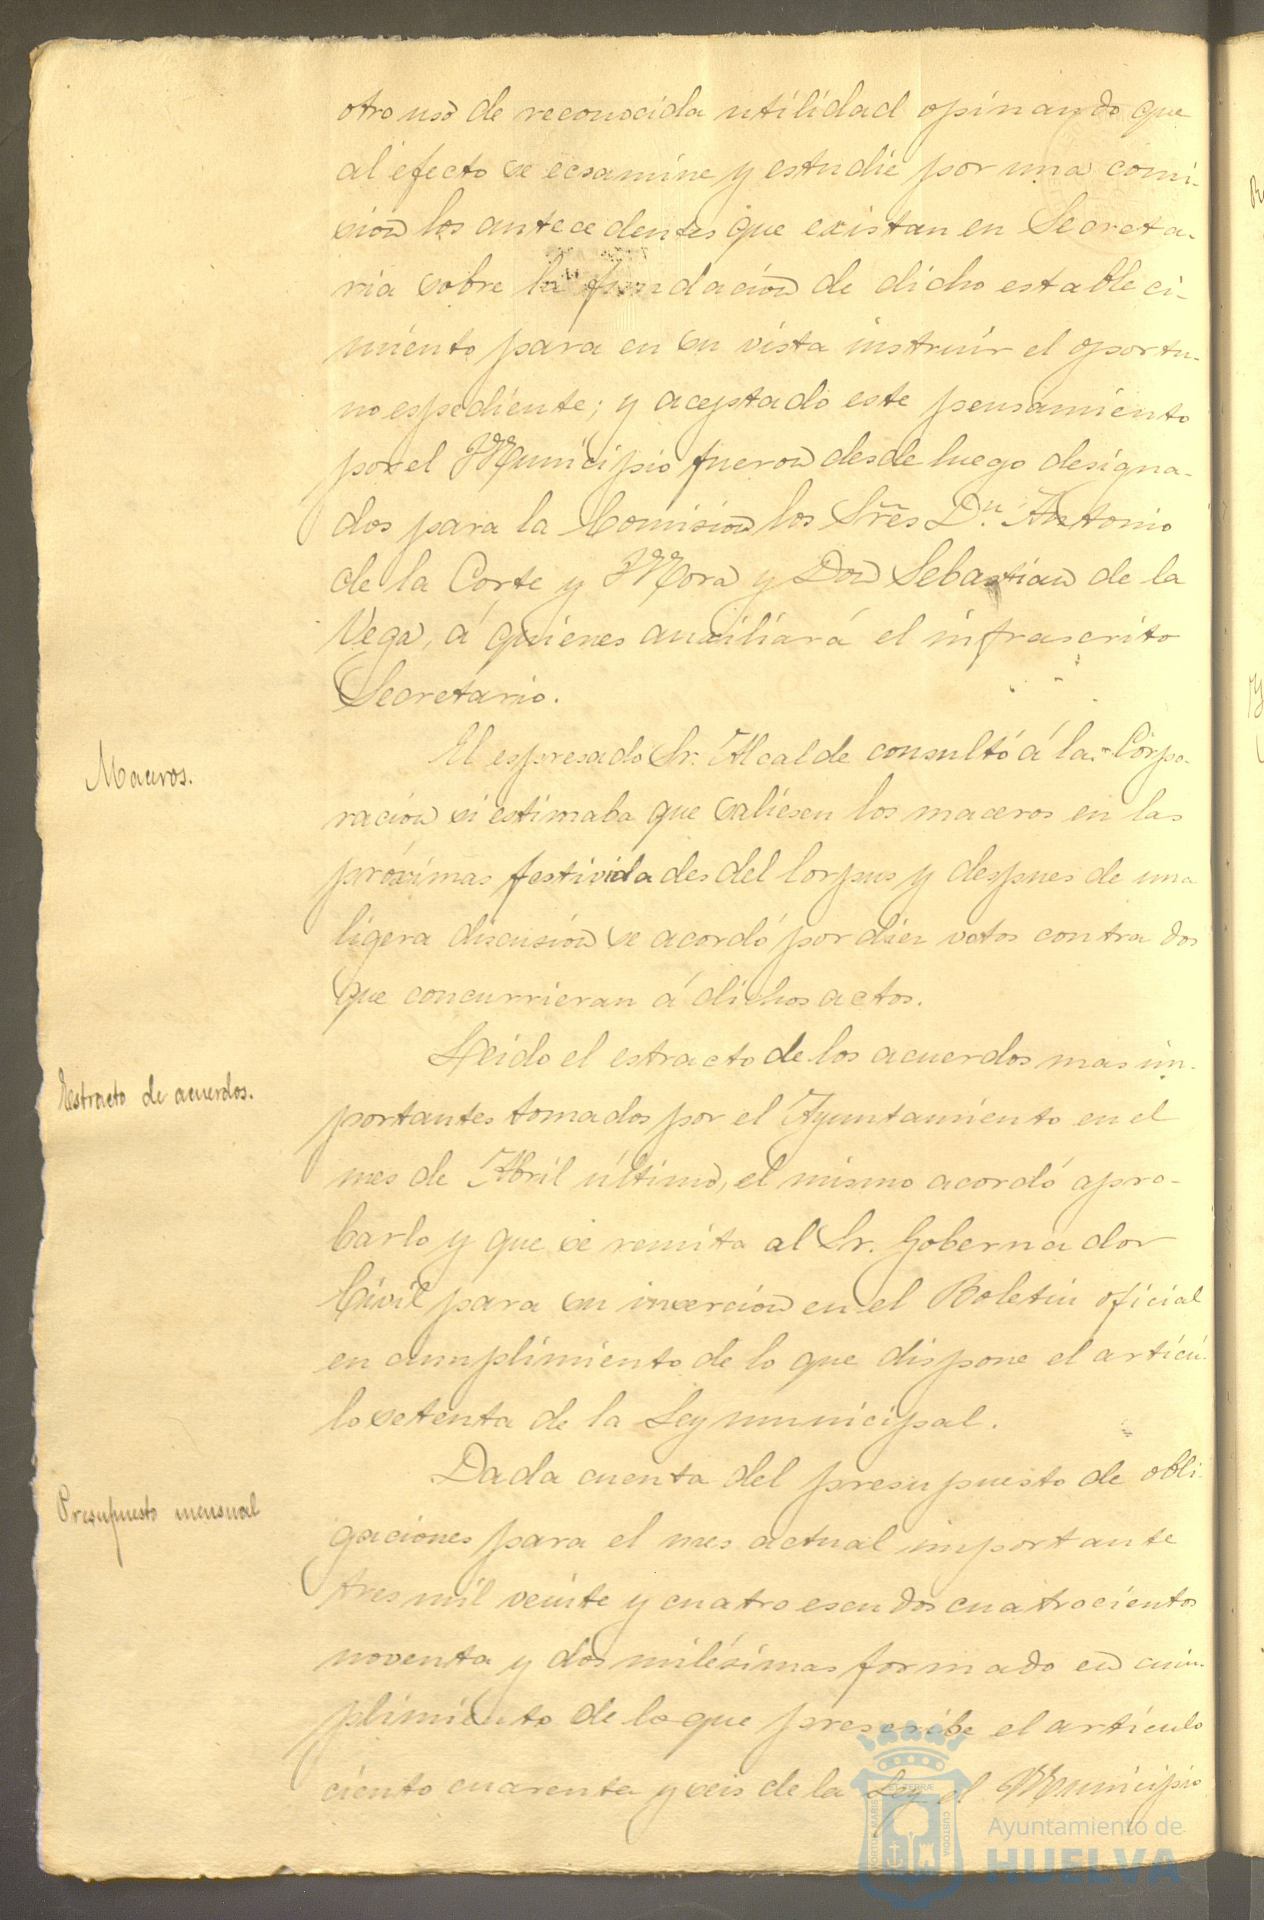 otro uso de reconocida utilidad opinando que
al efecto se ecsamine y estudie por una comi-
sion los antecedentes que existan en Secreta-
ria sobre la fundación de dicho estableci-
miento para en su vista instruir el oportu-
no espediente; y aceptado este pensamiento
por el Municipio fueron desde luego designa-
dos para la Comision los Sres Dn. Antonio
de la Corte y Mora y Don Sebastian de la
Vega, á quienes auxiliará el infrascrito
Secretario.
Maceros.
El espresado Sr. Alcalde consultó á la Corpo-
racion si estimaba que saliesen los maceros en las
próximas festividades del Corpus y despues de una
ligera discusión se acordó por diez votos contra dos
que concurrieran á dichos actos.
Estracto de acuerdos.
Leido el estracto de los acuerdos mas im-
portantes tomados por el Ayuntamiento en el
mes de Abril último, el mismo acordó apro-
barlo y que se remita al Sr. Gobernador
Civil para su insercion en el Boletin oficial
en cumplimiento de lo que dispone el artícu-
lo setenta de la Ley municipal.
Presupuesto mensual
Dada cuenta del presupuesto de obli-
gaciones para el mes actual importante
tres mil veinte y cuatro escudos cuatrocientos
noventa y dos milésimas formado en cum-
plimiento de lo que prescribe el artículo
ciento cuarenta y seis de la Ley el Municipio
Ayuntamiento de
HUELVA